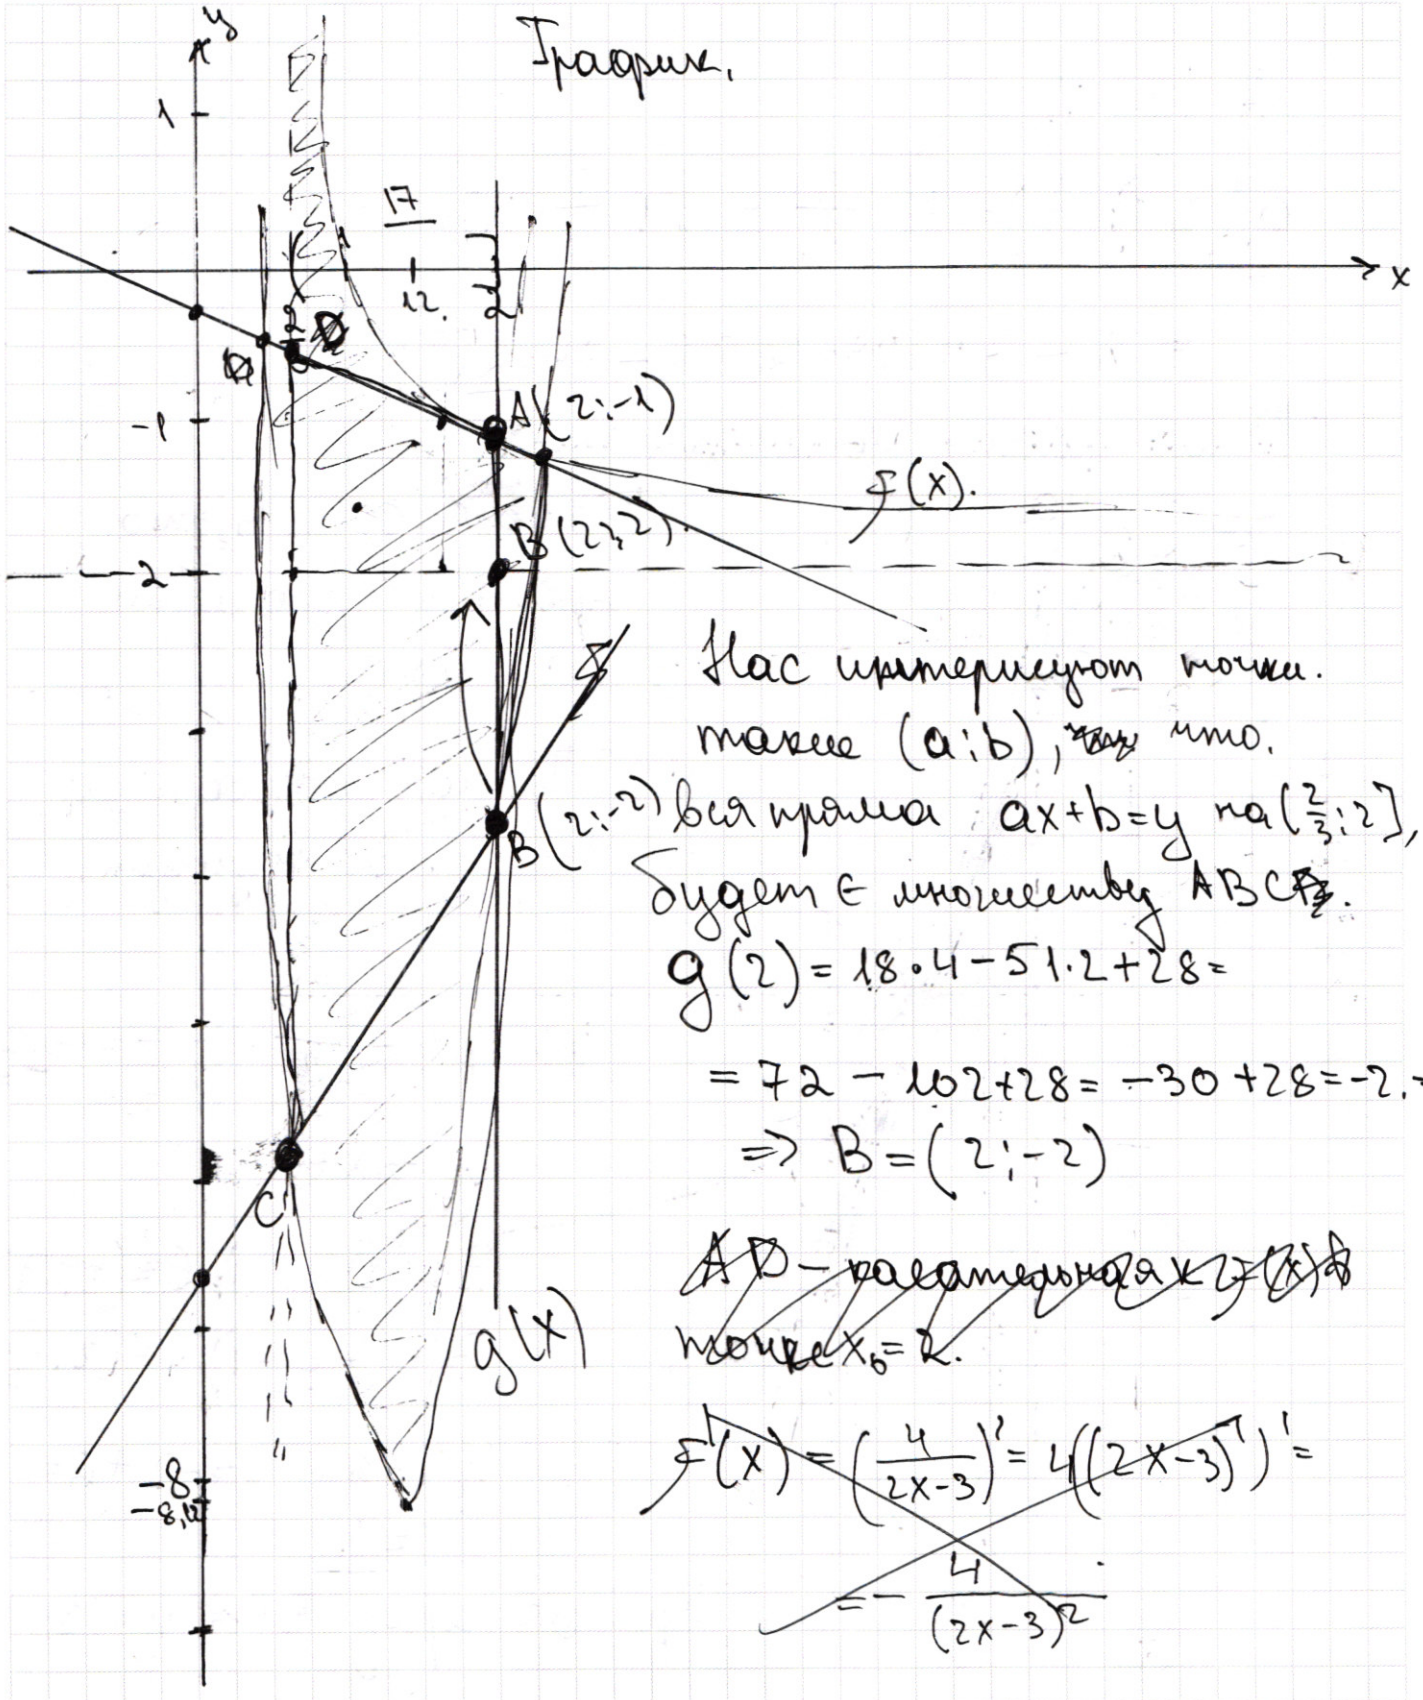 y
График.
1
17
12.
2
x
2
3
D
A(2;-1)
-1
F(x).
B(2;2).
-2
Нас интерисуют точки.
такие (a;b), что.
B(2;-2)
вся пряма ax+b=y на (2/3;2],
будет ∈ множеству ABCD.
g(2) = 18·4-51·2+28=
= 72 - 102+28 = -30 +28=-2.
=> B=(2;-2)
C
AD - касательная к F(x) в
точке x₀=2.
g(x)
F'(x) = (4/(2x-3))' = 4((2x-3)')' =
-8
-8,12
= - 4/(2x-3)²